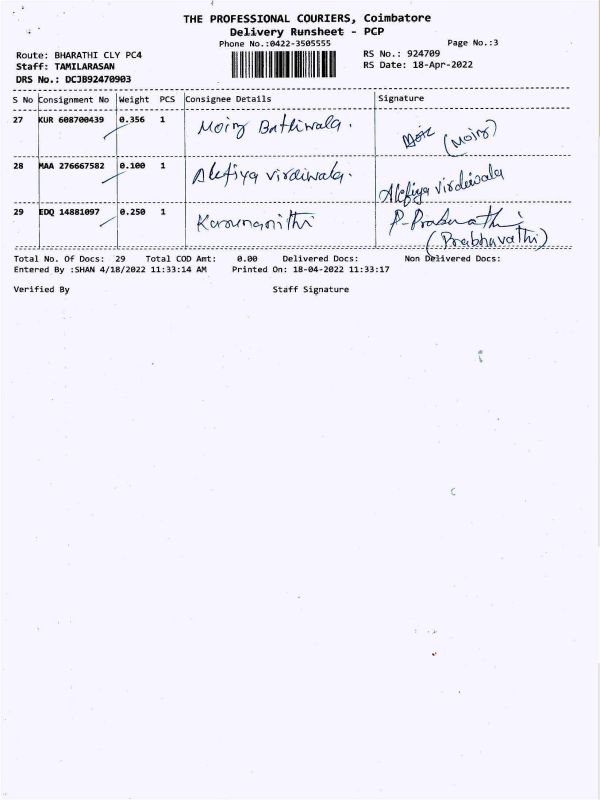 THE PROFESSIONAL COURIERS, Coimbatore
Delivery Runsheet - PCP
Phone No.:0422-3505555
Page No.:3
Route: BHARATHI CLY PC4
RS No.: 924709
Staff: TAMILARASAN
RS Date: 18-Apr-2022
DRS No.: DCJB92470903
S No Consignment No Weight PCS Consignee Details Signature
27 KUR 608700439 0.356 1 Moiz Bathiwala. (Moiz)
28 MAA 276667582 0.100 1 Alefiya virdiwala. Alefiya Virdiwala
29 EDQ 14881097 0.250 1 Karunanithi P. Prabavathi
(Prabhavathi)
Total No. Of Docs: 29 Total COD Amt: 0.00 Delivered Docs: Non Delivered Docs:
Entered By :SHAN 4/18/2022 11:33:14 AM Printed On: 18-04-2022 11:33:17
Verified By Staff Signature